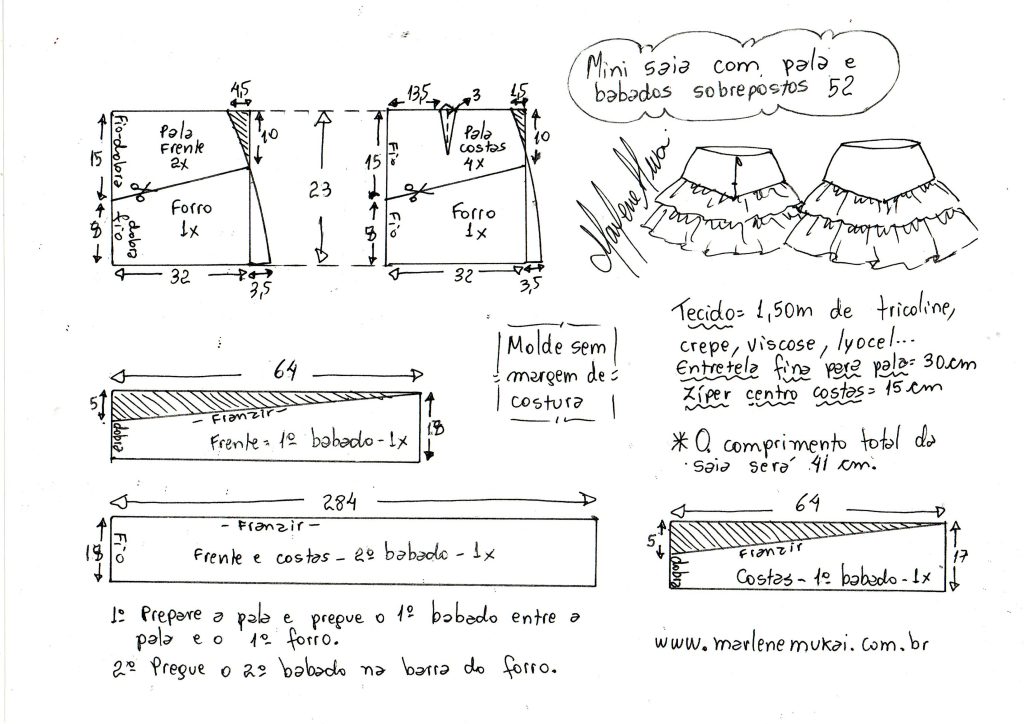 Mini saia com pala e
babados sobrepostos 52
Marlene Mukai
4,5
10
15
Fio-dobra
Pala
Frente
2x
Forro
1x
8
fio
dobra
32
3,5
23
13,5
3
1,5
10
15
Fio
Pala
costas
4x
Forro
1x
8
Fio
32
3,5
Tecido= 1,50m de tricoline,
crepe, viscose, lyocel...
Entretela fina para pala= 30cm
Zíper centro costas= 15cm
* O comprimento total da
saia será 41 cm.
Molde sem
margem de
costura
64
5
- Franzir -
dobra
Frente= 1º babado-1x
18
284
- Franzir -
18
Fio
Frente e costas - 2º babado - 1x
64
5
Franzir
dobra
Costas - 1º babado-1x
17
1º Prepare a pala e pregue o 1º babado entre a
pala e o 1º forro.
2º Pregue o 2º babado na barra do forro.
www.marlenemukai.com.br